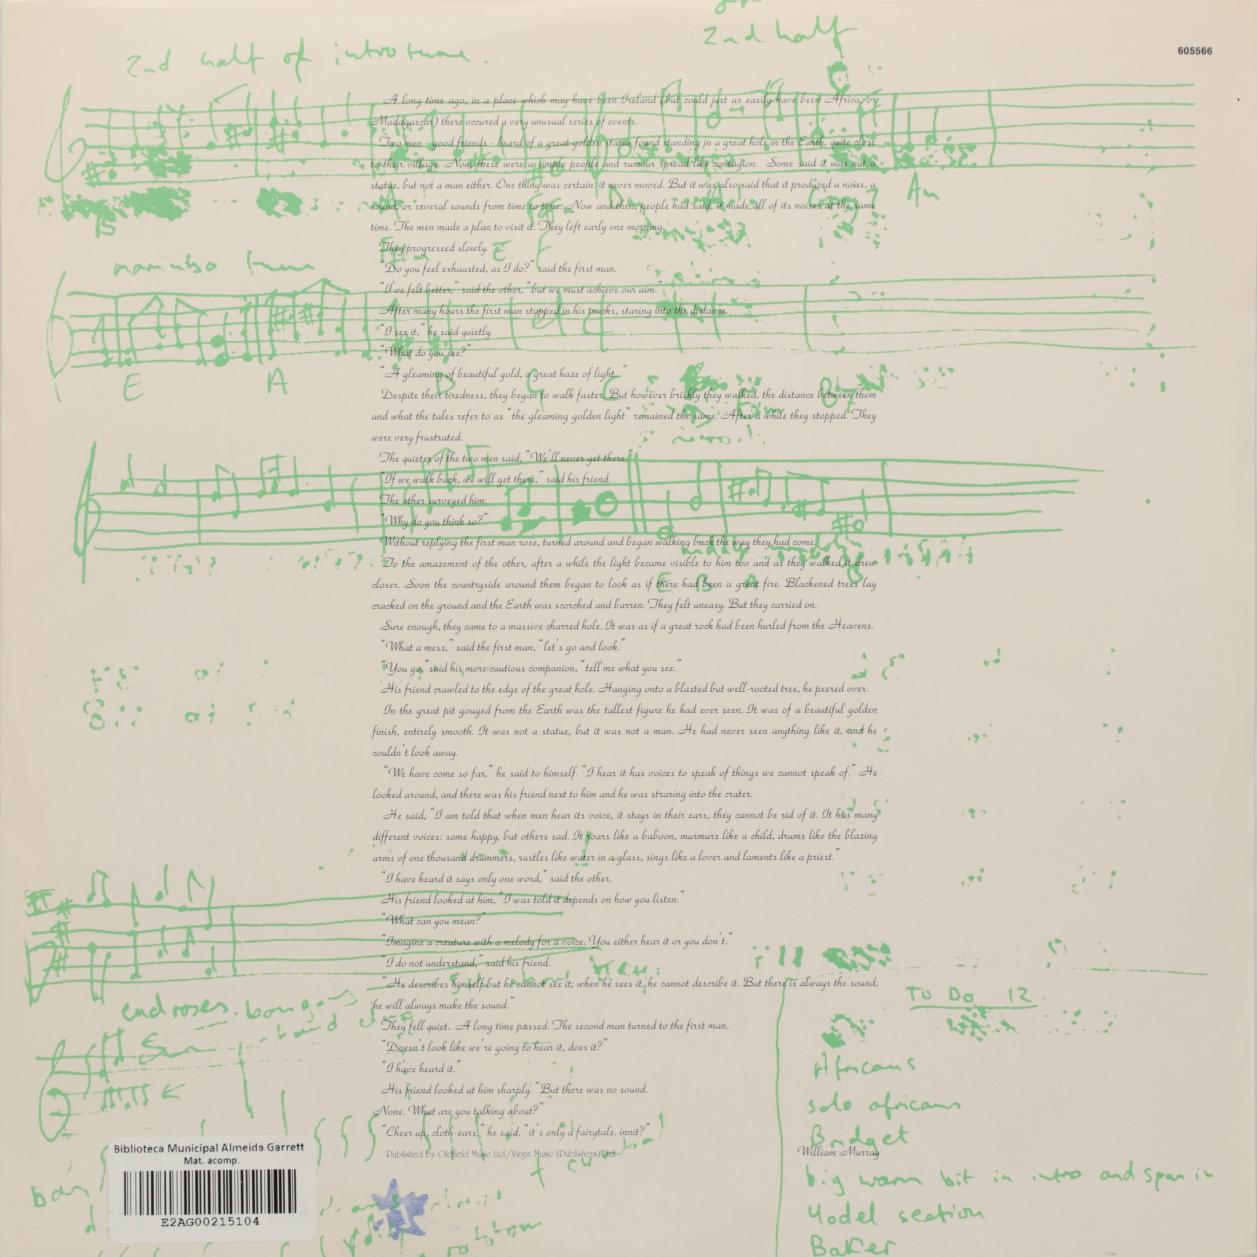 2nd half
2nd half of intro tune.
605566
A long time ago, in a place which may have been Ireland (but could just as easily have been Africa, or
Madagascar) there occured a very unusual series of events.
Two men - good friends - heard of a great golden statue found standing in a great hole in the Earth, quite close
to their village. Now, these were a simple people and rumour spread like contagion. Some said it was not a
statue, but not a man either. One thing was certain: it never moved. But it was also said that it produced a noise, a
sound, or several sounds from time to time. Now and then, people had said, it made all of its noises at the same
time. The men made a plan to visit it. They left early one morning.
Am
They progressed slowly.
marimba tune
"Do you feel exhausted, as I do?" said the first man.
"I've felt better," said the other, "but we must achieve our aim."
After many hours the first man stopped in his tracks, staring into the distance.
"I see it," he said quietly.
"What do you see?"
"A gleaming of beautiful gold, a great haze of light..."
E A B G C B7
Despite their tiredness, they began to walk faster. But however briskly they walked, the distance between them
and what the tales refer to as "the gleaming golden light" remained the same. After a while they stopped. They
were very frustrated.
The quieter of the two men said, "We'll never get there."
"If we walk back, we will get there," said his friend.
The other surveyed him.
"Why do you think so?"
Without replying the first man rose, turned around and began walking back the way they had come.
To the amazement of the other, after a while the light became visible to him too and as they walked it drew
closer. Soon the countryside around them began to look as if there had been a great fire. Blackened trees lay
E B A B
cracked on the ground and the Earth was scorched and barren. They felt uneasy. But they carried on.
Sure enough, they came to a massive charred hole. It was as if a great rock had been hurled from the Heavens.
"What a mess," said the first man, "let's go and look."
"You go," said his more cautious companion, "tell me what you see."
His friend crawled to the edge of the great hole. Hanging onto a blasted but well-rooted tree, he peered over.
In the great pit gouged from the Earth was the tallest figure he had ever seen. It was of a beautiful golden
finish, entirely smooth. It was not a statue, but it was not a man. He had never seen anything like it, and he
couldn't look away.
"We have come so far," he said to himself. "I hear it has voices to speak of things we cannot speak of." He
looked around, and there was his friend next to him and he was straring into the crater.
He said, "I am told that when men hear its voice, it stays in their ears, they cannot be rid of it. It has many
different voices: some happy, but others sad. It roars like a baboon, murmurs like a child, drums like the blazing
arms of one thousand drummers, rustles like water in a glass, sings like a lover and laments like a priest."
"I have heard it says only one word," said the other.
His friend looked at him, "I was told it depends on how you listen."
"What can you mean?"
"Imagine a creature with a melody for a voice. You either hear it or you don't."
"I do not understand," said his friend.
"He describes himself but he cannot see it; when he sees it, he cannot describe it. But there is always the sound,
he will always make the sound."
end roses. bongos
TO DO 12
They fell quiet. A long time passed. The second man turned to the first man.
"Doesn't look like we're going to hear it, does it?"
"I have heard it."
His friend looked at him sharply. "But there was no sound.
None. What are you talking about?"
"Cheer up, cloth-ears," he said, "it's only a fairytale. innit?"
Published by Oldfield Music Ltd./Virgin Music (Publishers) Ltd.
Africans
solo africans
Bridget
William Murray
big warm bit in intro and span in
Yodel section
Baker
Biblioteca Municipal Almeida Garrett
Mat. acomp.
E2AG00215104